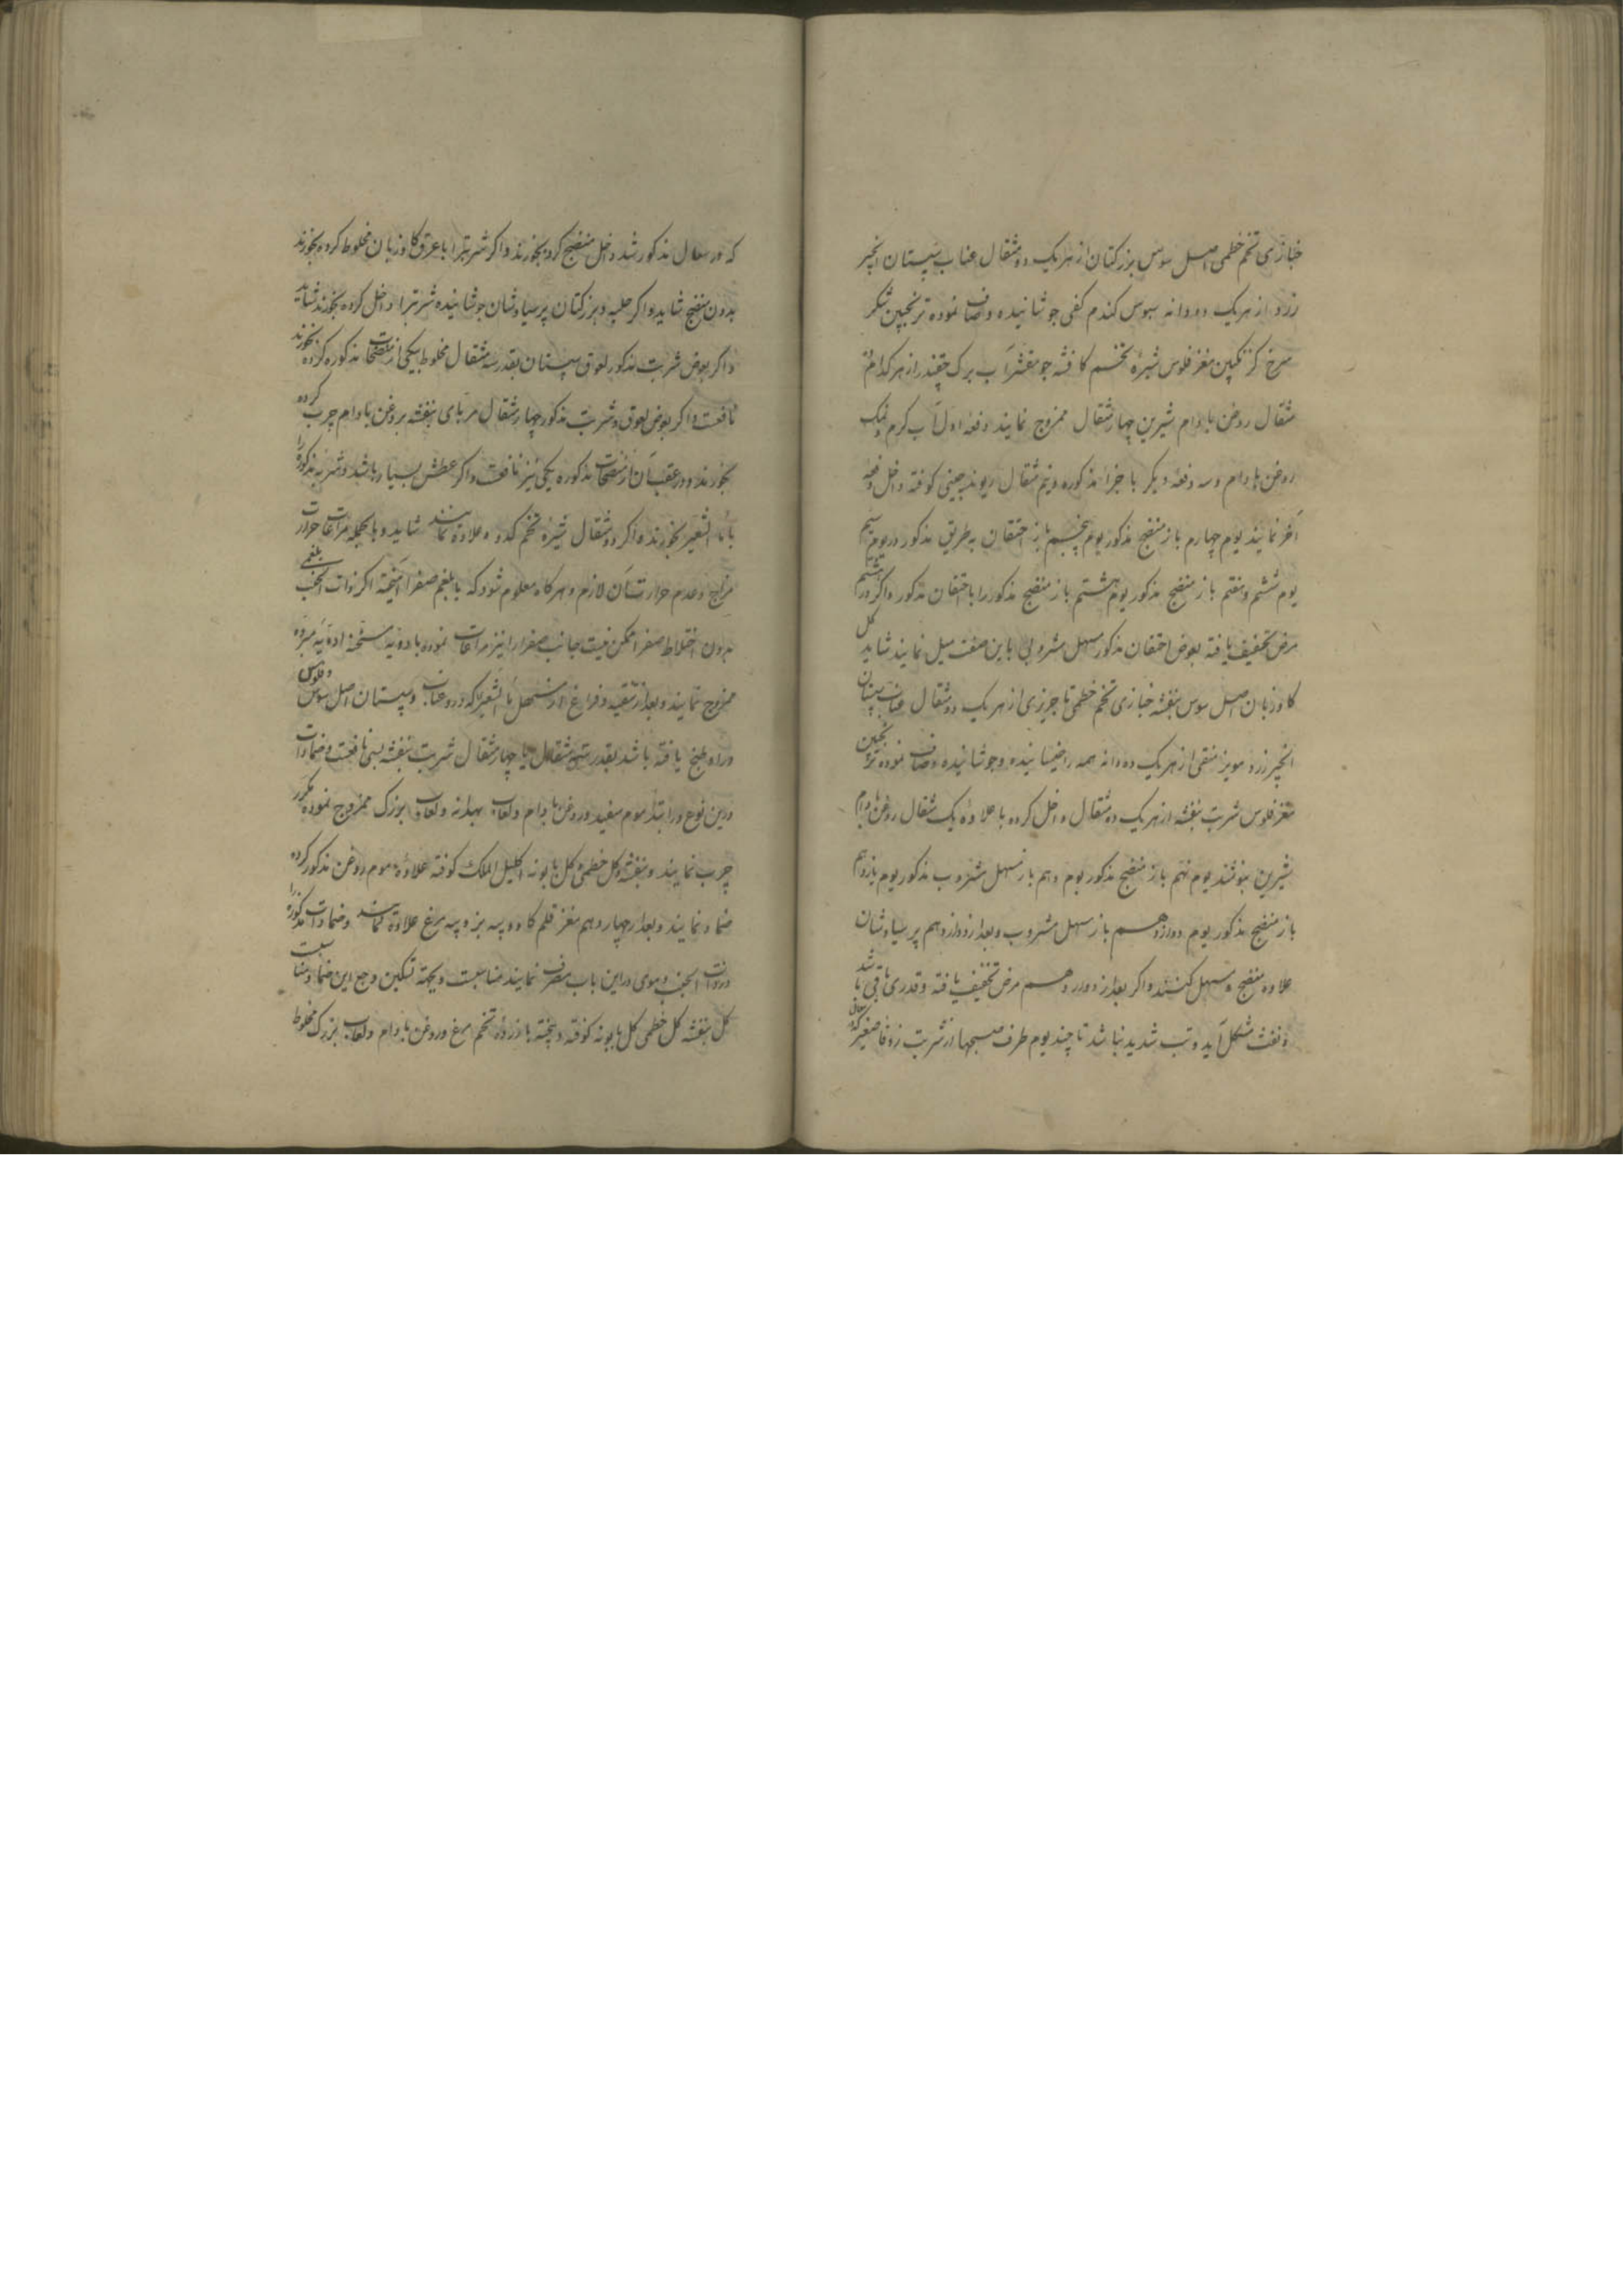 خبازی تخم خطمی اصل سوس بزرکتان از هر یک دو مثقال عناب سپستان انجیر
زرد از هر یک ده دانه سبوس کندم کفی جوشانیده و صاف نموده ترنجبین شکر
سرخ کزنکبین مغز فلوس شیرهٔ تخم کافشه جو مقشر آب برک چقندر از هر کدام ده
مثقال روغن بادام شیرین چهار مثقال ممزوج نمایند دفعه اول آب کرم و نمک
روغن بادام و سه دفعه دیکر با جزاء مذکوره و نیم مثقال ریوند چینی کوفته داخل دفعه
آخر نمایند یوم چهارم باز منضج مذکور یوم پنجم باز احتقان به طریق مذکور در یوم سیم
یوم ششم و هفتم باز منضج مذکور یوم هشتم باز منضج مذکور را با احتقان مذکور و اکر در هشتم
مرض تخفیف یافته بعوض احتقان مذکور مسهل مشروبی باین صفت میل نمایند شاید کل
کاوزبان اصل سوس بنفشه خبازی تخم خطمی تاجریزی از هر یک دو مثقال عناب سپستان
انجیر زرد مویز منقی از هر یک ده دانه همه را خیسانیده و جوشانیده و صاف نموده ترنجبین
مغز فلوس شربت بنفشه از هر یک ده مثقال داخل کرده با علاوهٔ یک مثقال روغن بادام
شیرین بنوشند یوم نهم باز منضج مذکور یوم دهم باز مسهل مشروب مذکور یوم یازدهم
باز منضج مذکور یوم دوازدهم باز مسهل مشروب و بعد از دوازدهم پرسیاوشان
علاوه منضج و مسهل کنند و اکر بعد از دوازدهم مرض تخفیف یافته و قدری باقی باشد
و نفث مشکل آید و تب شدید نباشد تا چند یوم طرف صبحها از شربت زوفا صغیر
که در سعال مذکور شد داخل منضج کرده بخورند و اکر شربت را با عرق کاوزبان مخلوط کرده بخورند
بدون منضج شاید و اکر حلبه و بزرکتان پرسیاوشان جوشانیده شربت را داخل کرده بخورند شاید
و اکر بعوض شربت مذکور لعوق سپستان بقدر سه مثقال مخلوط بیکی از منضجات مذکوره کرده بخورند
نافعست و اکر بعوض لعوق و شربت مذکور چهار مثقال مربای بنفشه بروغن بادام چرب کرده
بخورند و در عقب آن از منضجات مذکوره یکی نیز نافعست و اکر عطش بسیار باشد و شربت مذکور را
با ماء الشعیر بخورند و اکر دو مثقال شیرهٔ تخم کدو علاوه نمایند شاید و بالجمله مراعات حرارت
مزاج و عدم حرارت آن لازم و هر کاه معلوم شود که با بلغم صفرا آمیخته اکر ذات الجنب بلغمی
بدون اختلاط صفرا ممکن نیست جانب صفرا را نیز مراعات نموده با ادویه مسخنه ادویه مبرده
ممزوج نمایند و بعد از تنقیه و فراغ از مسهل ماء الشعیر که در او عناب و سپستان اصل سوس و فلوس
در او طبخ یافته باشد بقدر مثقال با چهار مثقال شربت بنفشه بسی نافعست و ضمادات
درین نوع در ابتدا موم سفید و روغن بادام و لعاب بهدانه و لعاب بزرک ممزوج نموده مکرر
چرب نمایند و بنفشه و کل خطمی و کل بابونه اکلیل الملک کوفته علاوه موم روغن مذکور کرده
ضماد نمایند و بعد از چهاردهم مغز قلم کاو و پیه بز و پیه مرغ علاوه نمایند و ضمادات مذکوره را
در ذات الجنب دموی در این باب مصرف نمایند مناسبت و بجهته تسکین وجع این ضماد مناسبست
کل بنفشه کل خطمی کل بابونه کوفته و پخته با زردهٔ تخم مرغ و روغن بادام و لعاب بزرک مخلوط